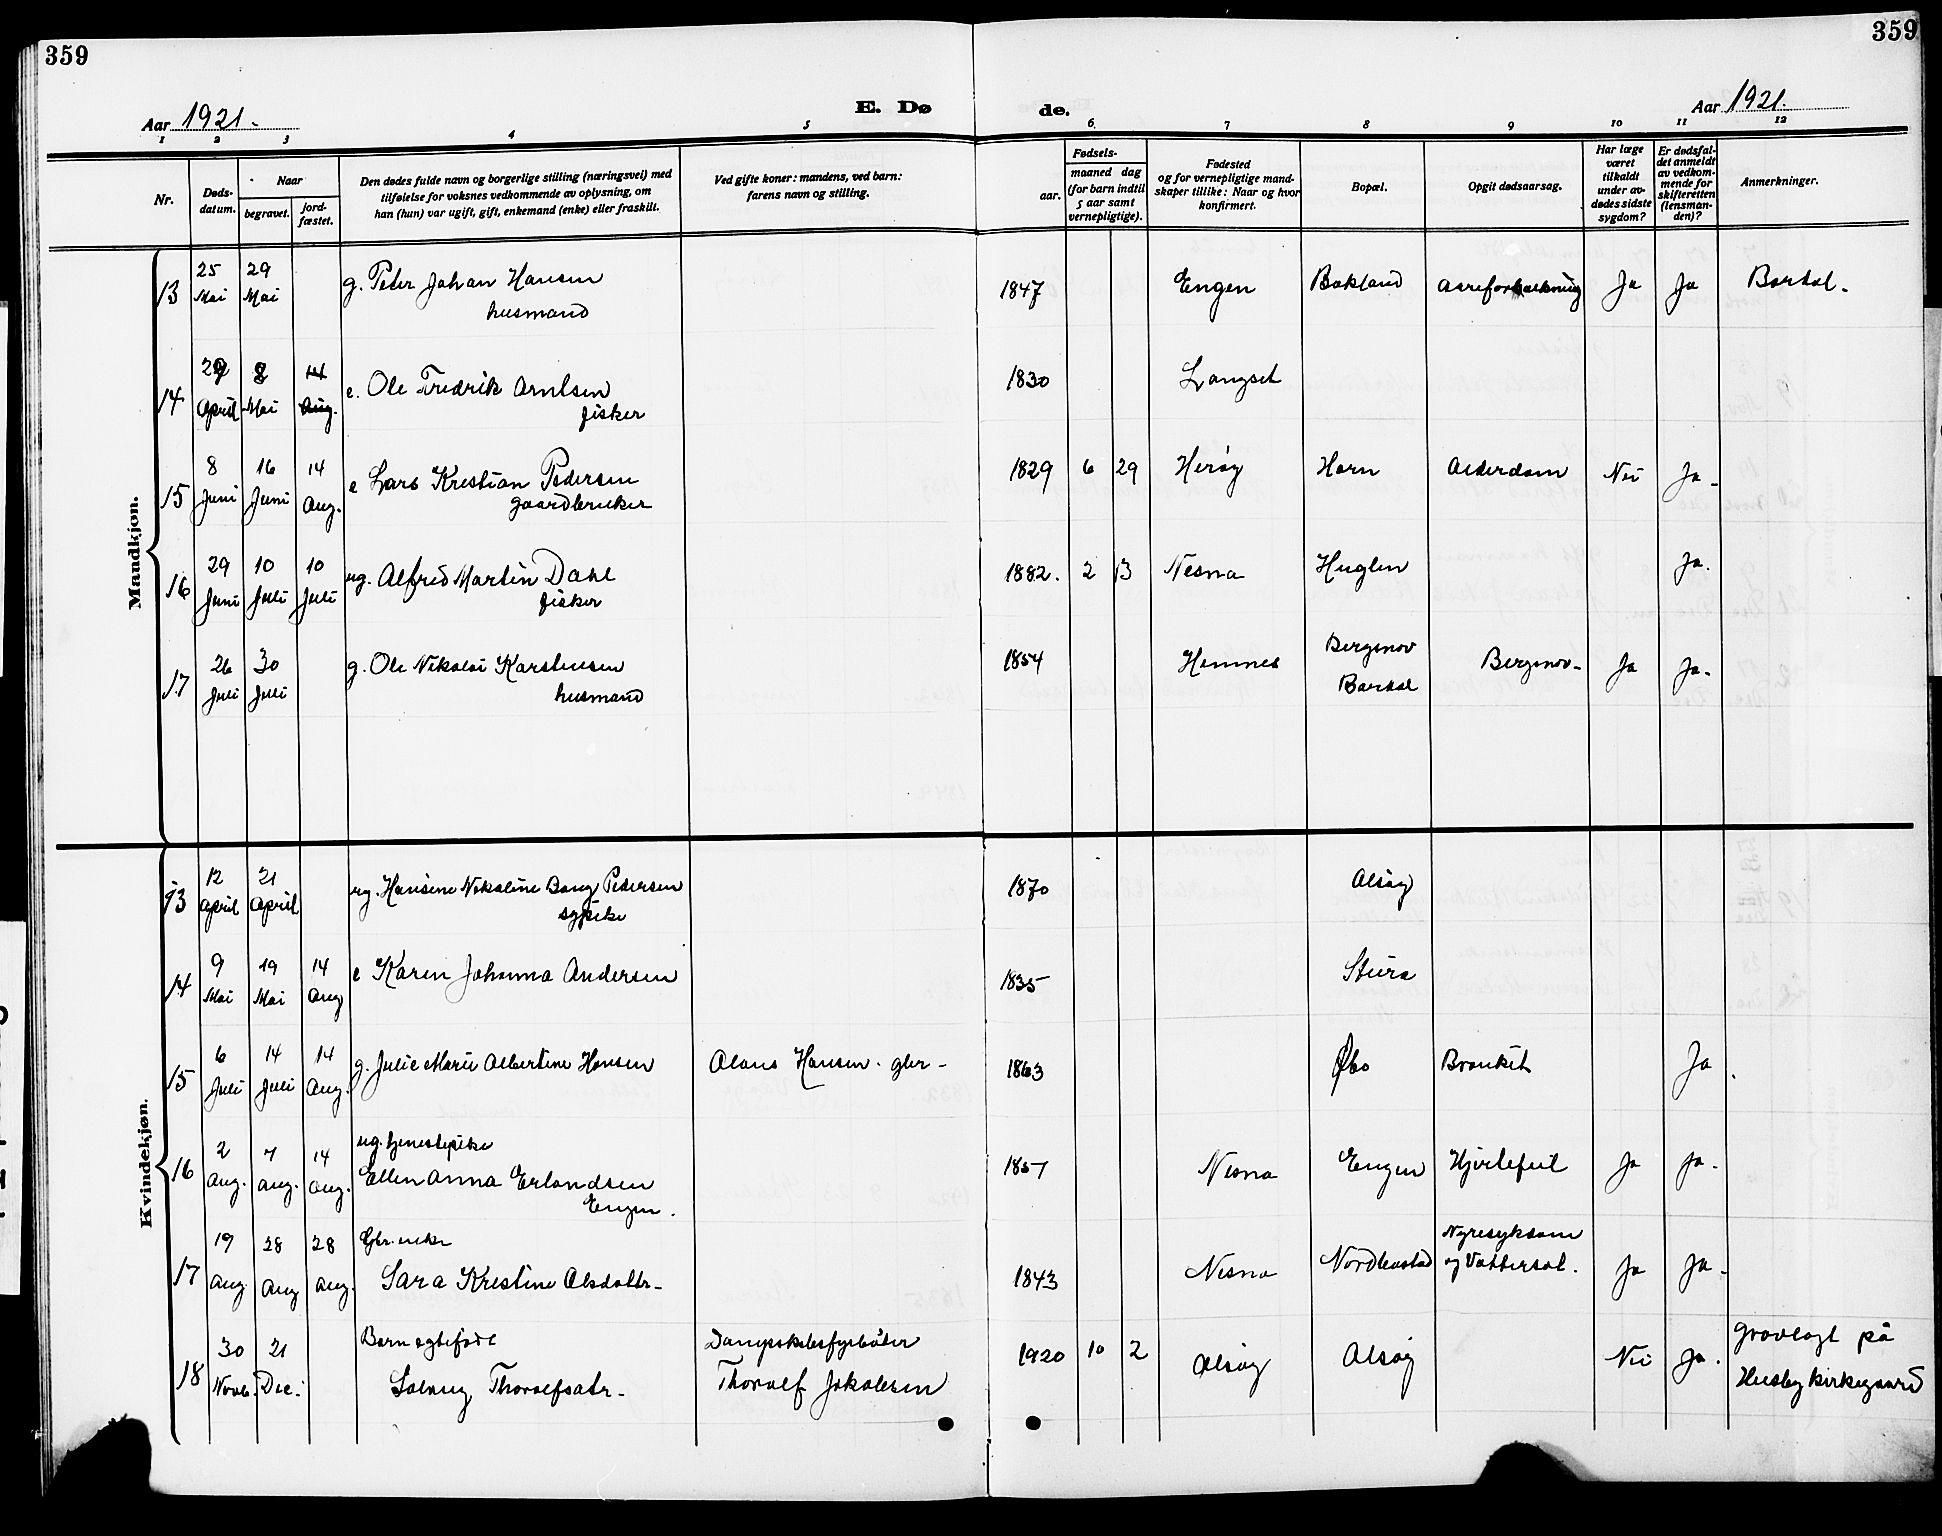 359
359
Aar 1921.
E. Dø
de.
Aar 1921.
1 2 3 4 5 6. 7 8 9 10 11 12
Nr.
Døds-
datum.
Naar
begravet.
jord-
fæstet.
Den dødes fulde navn og borgerlige stilling (næringsvei) med
tilføielse for voksnes vedkommende av oplysning, om
han (hun) var ugift, gift, enkemand (enke) eller fraskilt.
Ved gifte koner: mandens, ved barn:
farens navn og stilling.
aar.
Fødsels-
maaned dag
(for barn indtil
5 aar samt
vernepligtige).
Fødested
og for vernepligtige mand-
skaper tillike: Naar og hvor
konfirmert.
Bopæl.
Opgit dødsaarsag.
Har læge
været
tilkaldt
under av-
dødes sidste
sygdom?
Er dødsfal-
det anmeldt
av vedkom-
mende for
skifteretten
(lensman-
den)?
Anmerkninger.
Mandkjøn.
13 25 Mai 29 Mai g. Peter Johan Hansen 1847 Engen Bakland Aareforkalkning Ja Ja Bardal.
husmand
14 April Mai 14 Aug. e. Ole Fredrik Arntsen 1830 Langset
fisker
15 8 Juni 16 Juni 14 Aug. e Lars Kristian Pedersen 1829 6 29 Herøy Horn Alderdom Nei Ja-
gaardbruker
16 29 Juni 10 Juli 10 Juli ug. Alfred Martin Dahl 1882. 2 13 Nesna Huglen Ja.
fisker
17 26 Juli 30 Juli g. Ole Nikolai Karstensen 1854 Hemnes Bergsnov Bardal Bergsnov- Ja Ja-
husmand
Kvindekjøn.
13 12 April 21 April ug. Hansine Nikoline Bang Pedersen 1870 Alsøy
sypike
14 9 Mai 19 Mai 14 Aug e Karen Johanna Andersen 1835 Stura
15 6 Juli 14 Juli 14 Aug. g. Julie Marie Albertine Hansen Hansen. gbr- 1863 Øbo Bronkit Ja.
16 2 Aug. 7 Aug. 14 Aug. ug. tjenestepike
Ellen Anna Erlandsen 1857 Nesna Engen Hjertefeil Ja Ja-
Engen.
17 19 Aug 28 Aug 28 Aug. Gbr. enke
Sara Kristine Olsdattr- 1843 Nesna Nyresyksom
og Vattersot. Ja Ja-
18 30 Novb. 21 Dec. Barn egtefødt Dampskibsfyrbøter
Solveig Thoralfsdtr- Thoralf Jakobsen 1920 10 2 Alsøy Alsøy Nei Ja. Gravlagt på
Husby kirkegaard